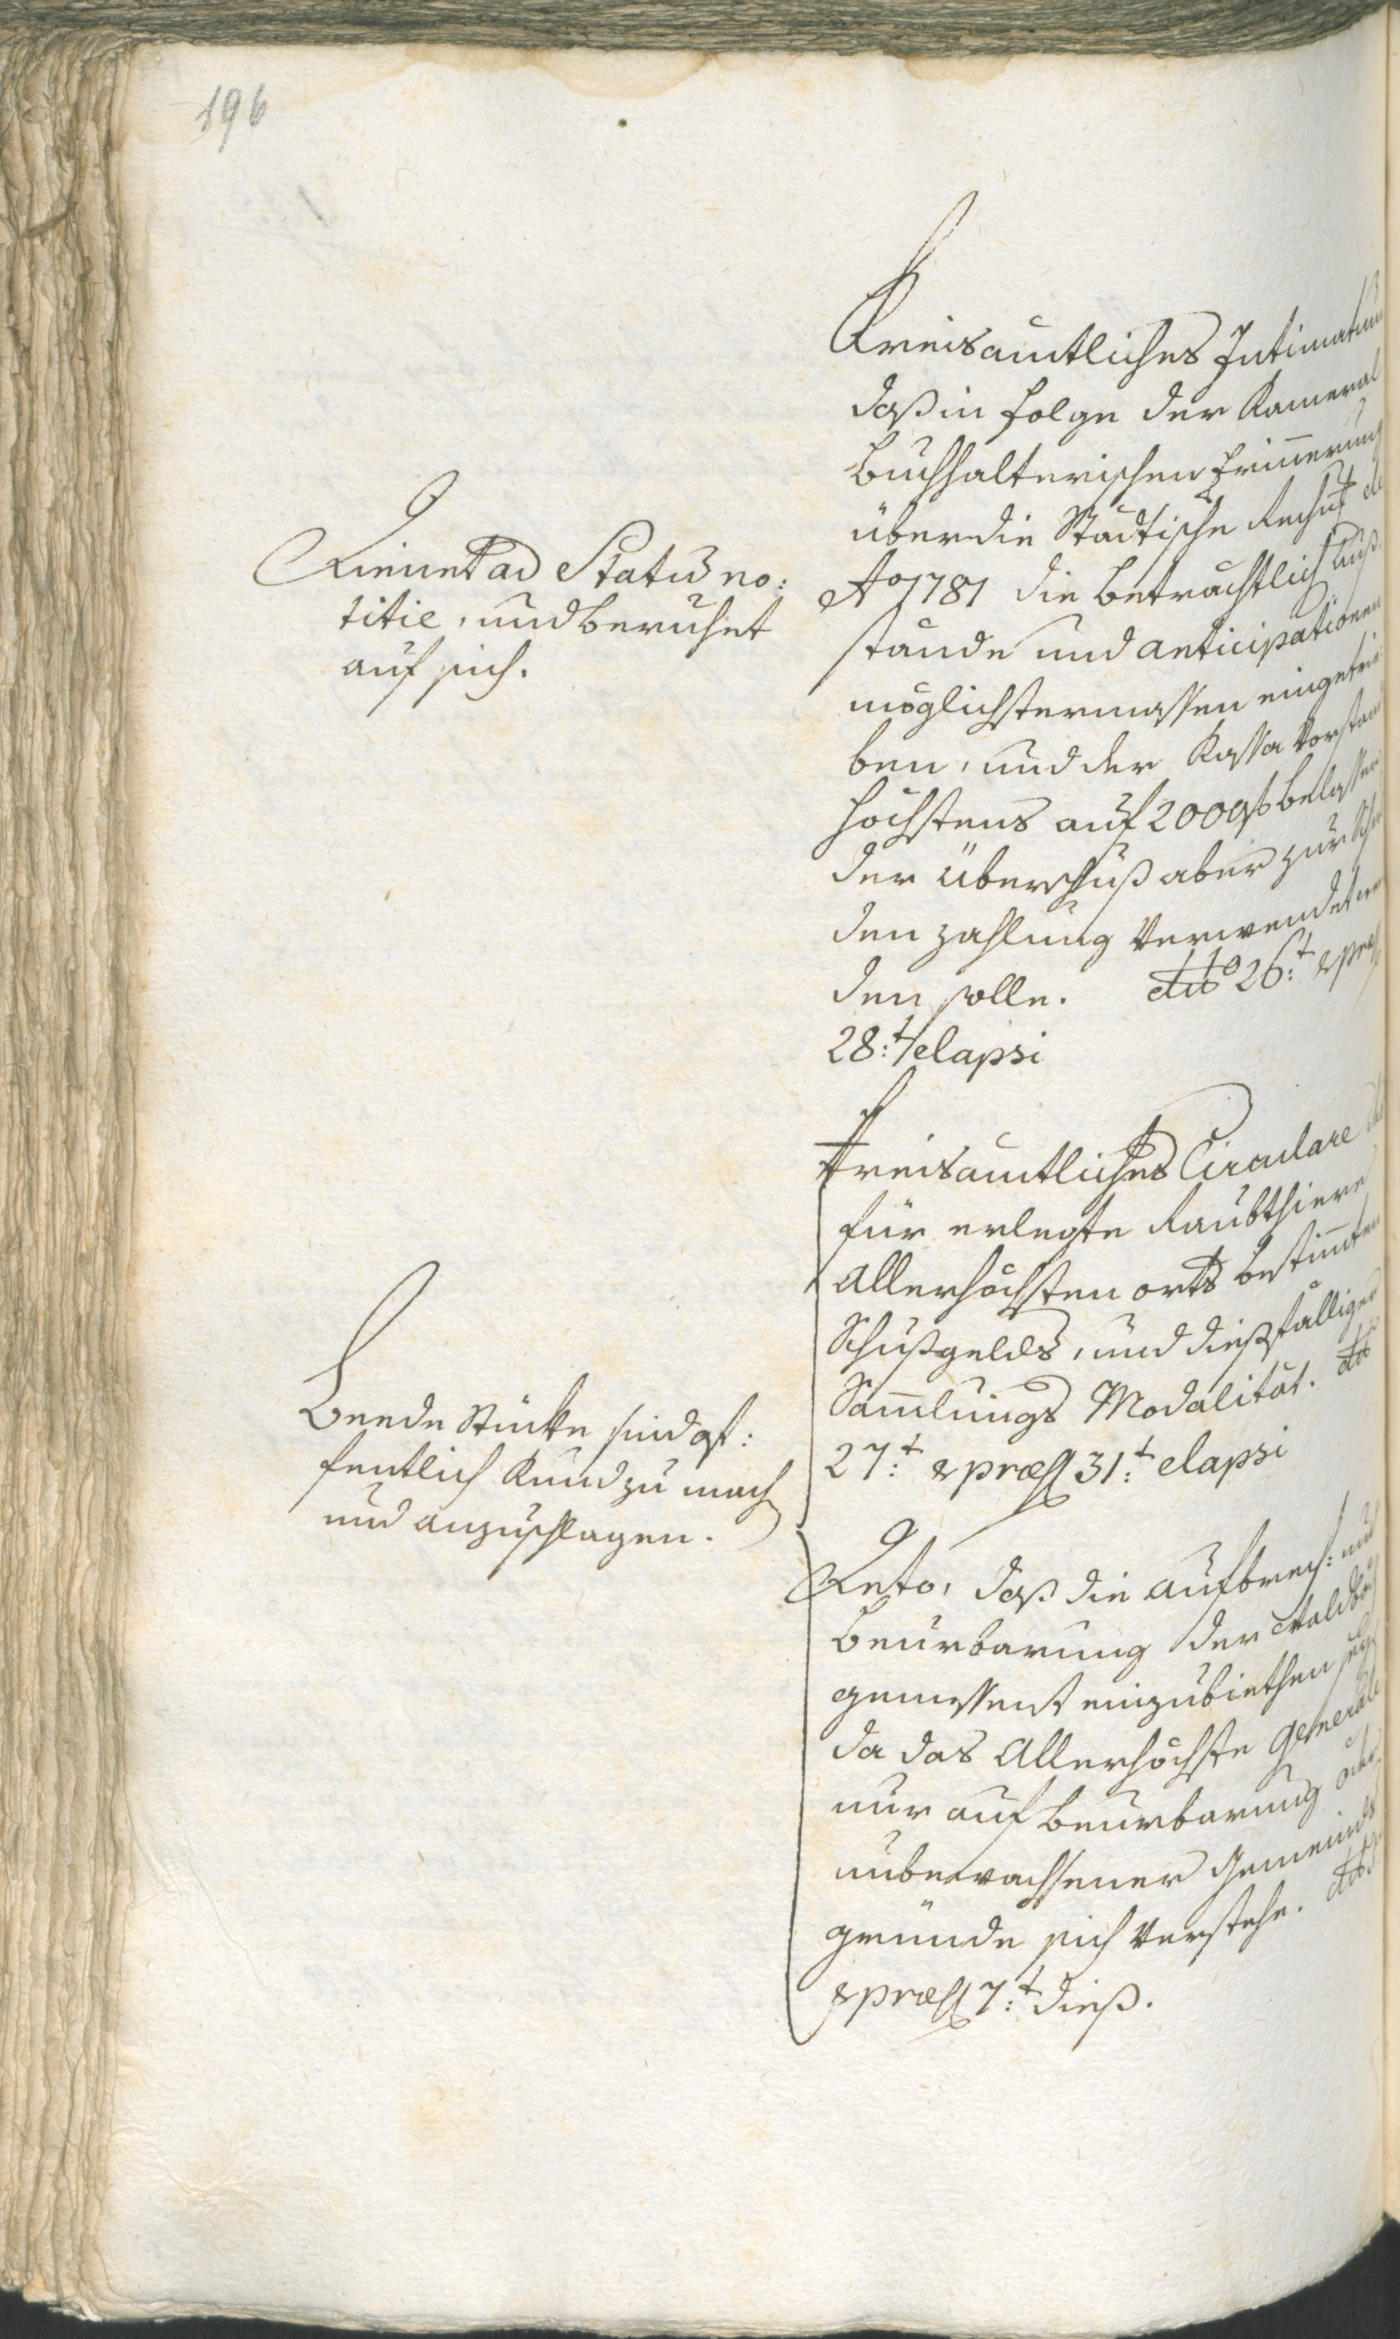 196
Kreisamtliches Intimatum
daß in Folge der Kameral
Buchhalterischen Erinnerung
über die Stadtische Rechnu͞g de
Ao 1781 die beträchtlich Auß
stände und Anticipationen
möglichstermassen eingetrie
ben, und der Kassa Vorstand
höchstens auf 200 f belassen
der Überschuß aber zur Schul
den Zahlung verwendet wer
den solle. dto 26:t & præs
28:t elapsi
Dienet ad Status no:
titie, und beruhet
auf sich.
Kreisamtliches Circulare
für erlegte Raubthiere
Allerhöchsten orts bestim̅ten
Schußgelds, und dießfälligen
Sam̅lungs Modalität. dto
27:t & præs 31:t elapsi
Beede Stücke sind öf:
fentlich Kund zu mach
und anzuschlagen.
Deto, daß die Aufbrech: und
Beurbarung der Waldbö
gemessenst einzubiethen sey
da das Allerhöchste Generale
nur auf Beurbarung öder
unbewachsener Gemeinds
gründe sich verstehe. dto
& præs 7:t dieß.